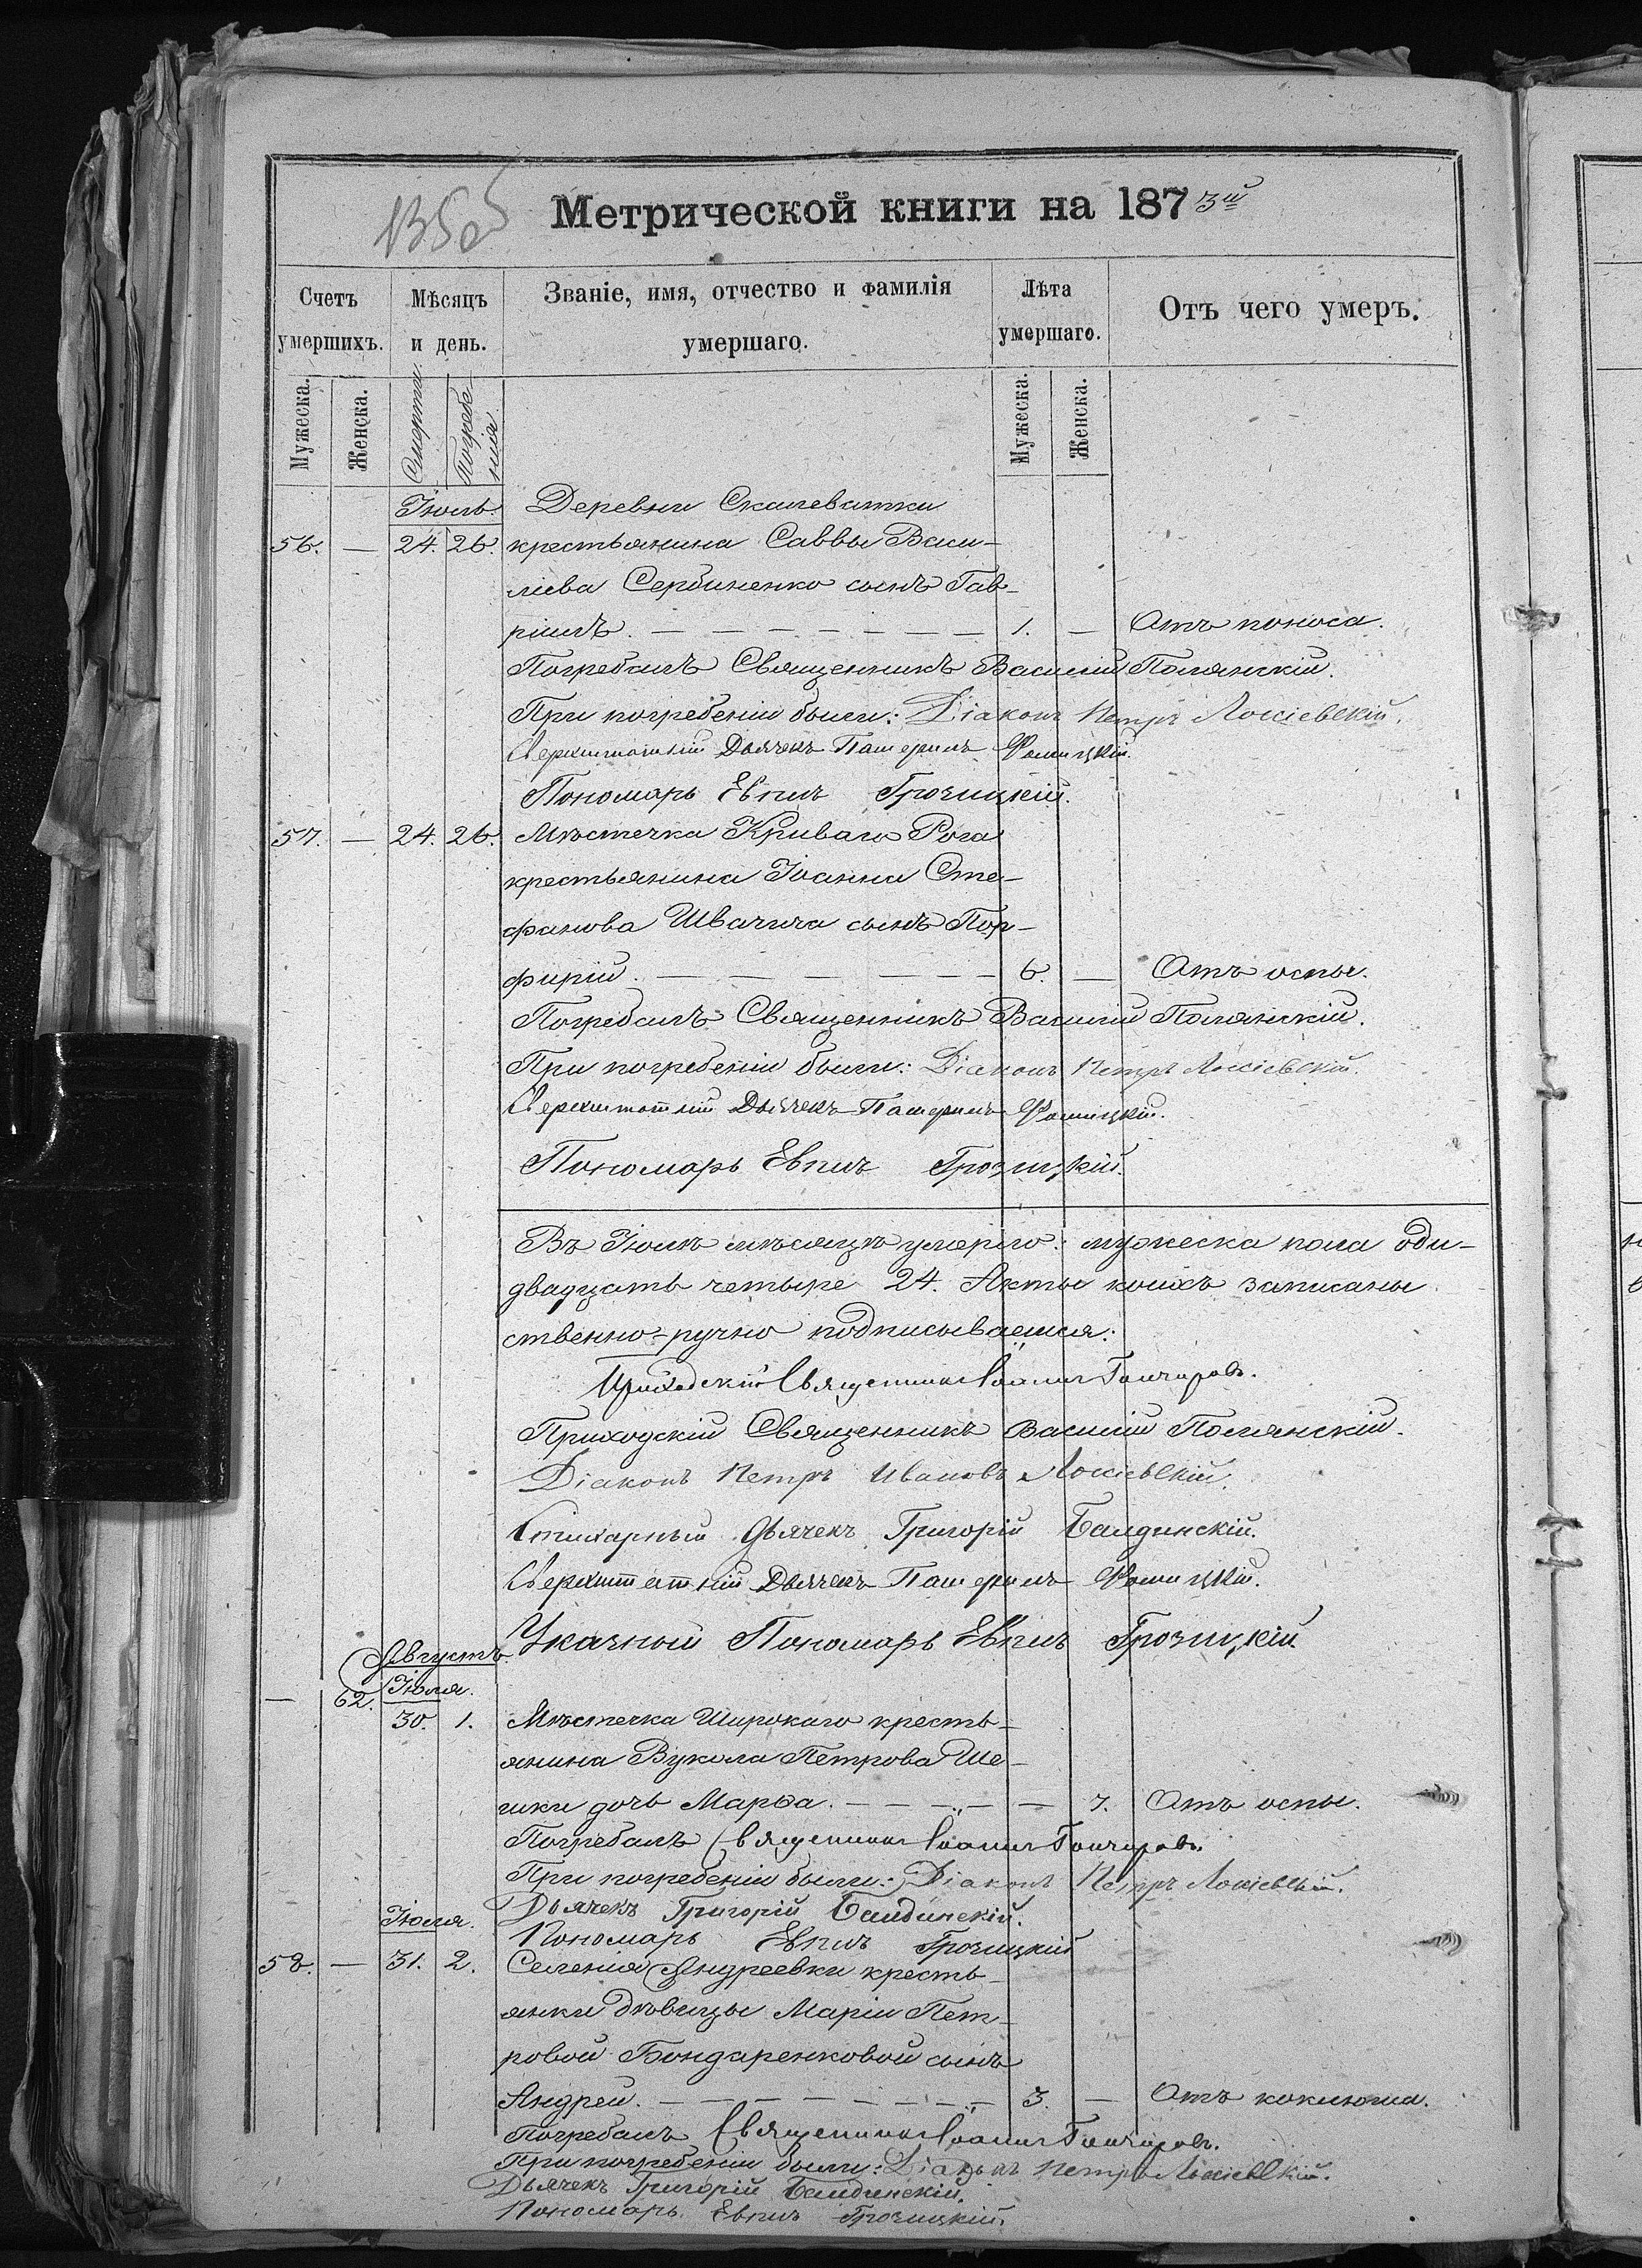 Метрической книги на 1873й
Счетъ умершихъ.
Мѣсяцъ и день.
Званіе, имя, отчество и фамилія умершаго.
Лѣта умершаго.
Отъ чего умеръ.
Мужеска.
Женска.
Смерти.
Погребенія.
Мужеска.
Женска.
Іюль. Деревни Скалеватки
56. — 24. 26. крестьянина Саввы Васи-
лiева Сербиненко сынъ Гав-
ріилъ. — — — — — — — 1. — Отъ поноса.
Погребалъ Священникъ Василій Полянскій.
При погребеніи были: Діаконъ Петръ Лосіевскій.
Сверхштатній Дьячекъ
Пономарь Грозицкій.
57. — 24. 26. Мѣстечка Криваго Рога
крестьянина Іоанна Сте-
фанова Швачича сынъ Пор-
фирій. — — — — — — 6. — Отъ оспы.
Погребалъ Священникъ Василій Полянскій.
При погребеніи были: Діаконъ Петръ Лосіевскій.
Сверхштатній Дьячекъ
Пономарь Грозицкій.
Въ Іюлѣ мѣсяцѣ умерло: мужеска пола оди-
двадцать четыре 24. Акты коихъ записаны
ственно-ручно подписываемся:
Приходскій Священникъ Іоаннъ Гончаровъ.
Приходскій Священникъ Василій Полянскій.
Діаконъ Петръ Ивановъ Лосіевскій.
Стихарный Дьячекъ Григорій Балдинскій.
Сверхштатній Дьячекъ
Указный Пономарь Грозицкій.
Августъ.
— 62. Іюля.
30. 1. Мѣстечка Широкаго кресть-
янина Вукола Петрова Ше-
шки дочь Марѳа. — — — — — 7. Отъ оспы.
Погребалъ Священникъ Іоаннъ Гончаровъ.
При погребеніи были: Діаконъ Петръ Лосіевскій.
Дьячекъ Григорій Балдинскій.
Іюля.
Пономарь Грозицкій
58. — 31. 2. Селенія Андреевки кресть-
янки дѣвицы Маріи Пет-
ровой Бондаренковой сынъ
Андрей. — — — — — — — 3. — Отъ коклюша.
Погребалъ Священникъ Іоаннъ Гончаровъ.
При погребеніи были: Діаконъ Петръ Лосіевскій.
Дьячекъ Григорій Балдинскій.
Пономарь Грозицкій.